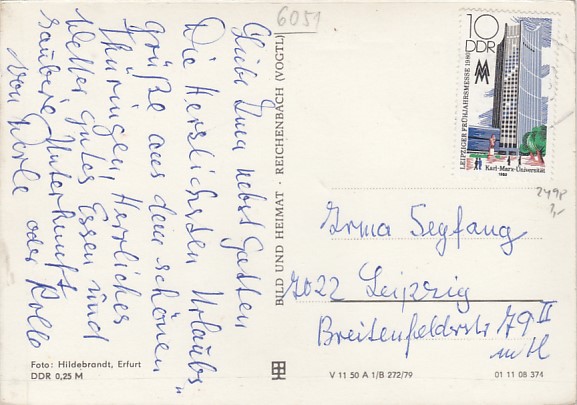 6051
Liebe Irma nebst Gatten
Die Herzlichsten Urlaubs-
grüße aus dem schönen
Thüringen, Herrliches
Wetter gutes Essen und
saubere Unterkunft
von
oder
BILD UND HEIMAT · REICHENBACH (VOGTL)
10
DDR
MM
LEIPZIGER FRÜHJAHRSMESSE 1980
Karl-Marx-Universität
1980
2498
Irma Segfang
7022 Leipzig
Breitenfeldstr 79 II
Foto: Hildebrandt, Erfurt
DDR 0,25 M
V 11 50 A 1/B 272/79
01 11 08 374